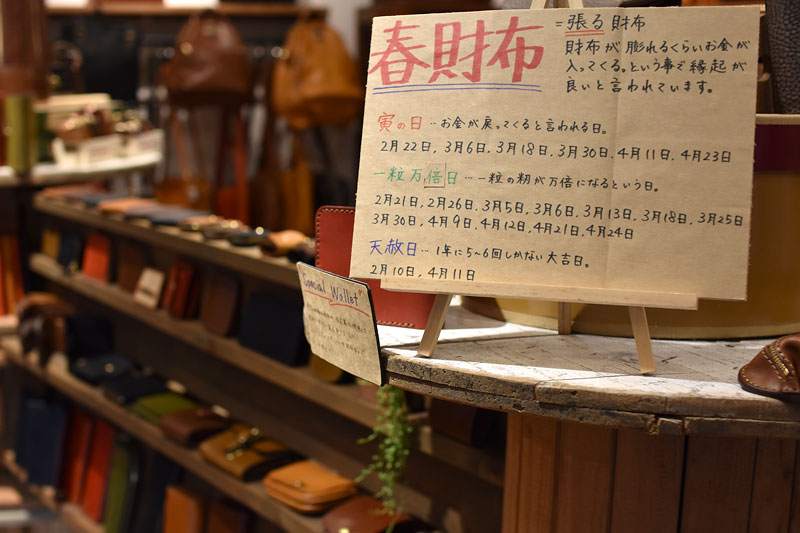 春財布
=張る財布
財布が膨れるくらいお金が
入ってくる。という事で縁起が
良いと言われています。
寅の日…お金が戻ってくると言われる日。
2月22日, 3月6日, 3月18日, 3月30日, 4月11日, 4月23日
一粒万倍日…一粒の籾が万倍になるという日。
2月21日, 2月26日, 3月5日, 3月6日, 3月13日, 3月18日, 3月25日
3月30日, 4月9日, 4月12日, 4月21日, 4月24日
天赦日…1年に5〜6回しかない大吉日。
2月10日, 4月11日
Special Wallet